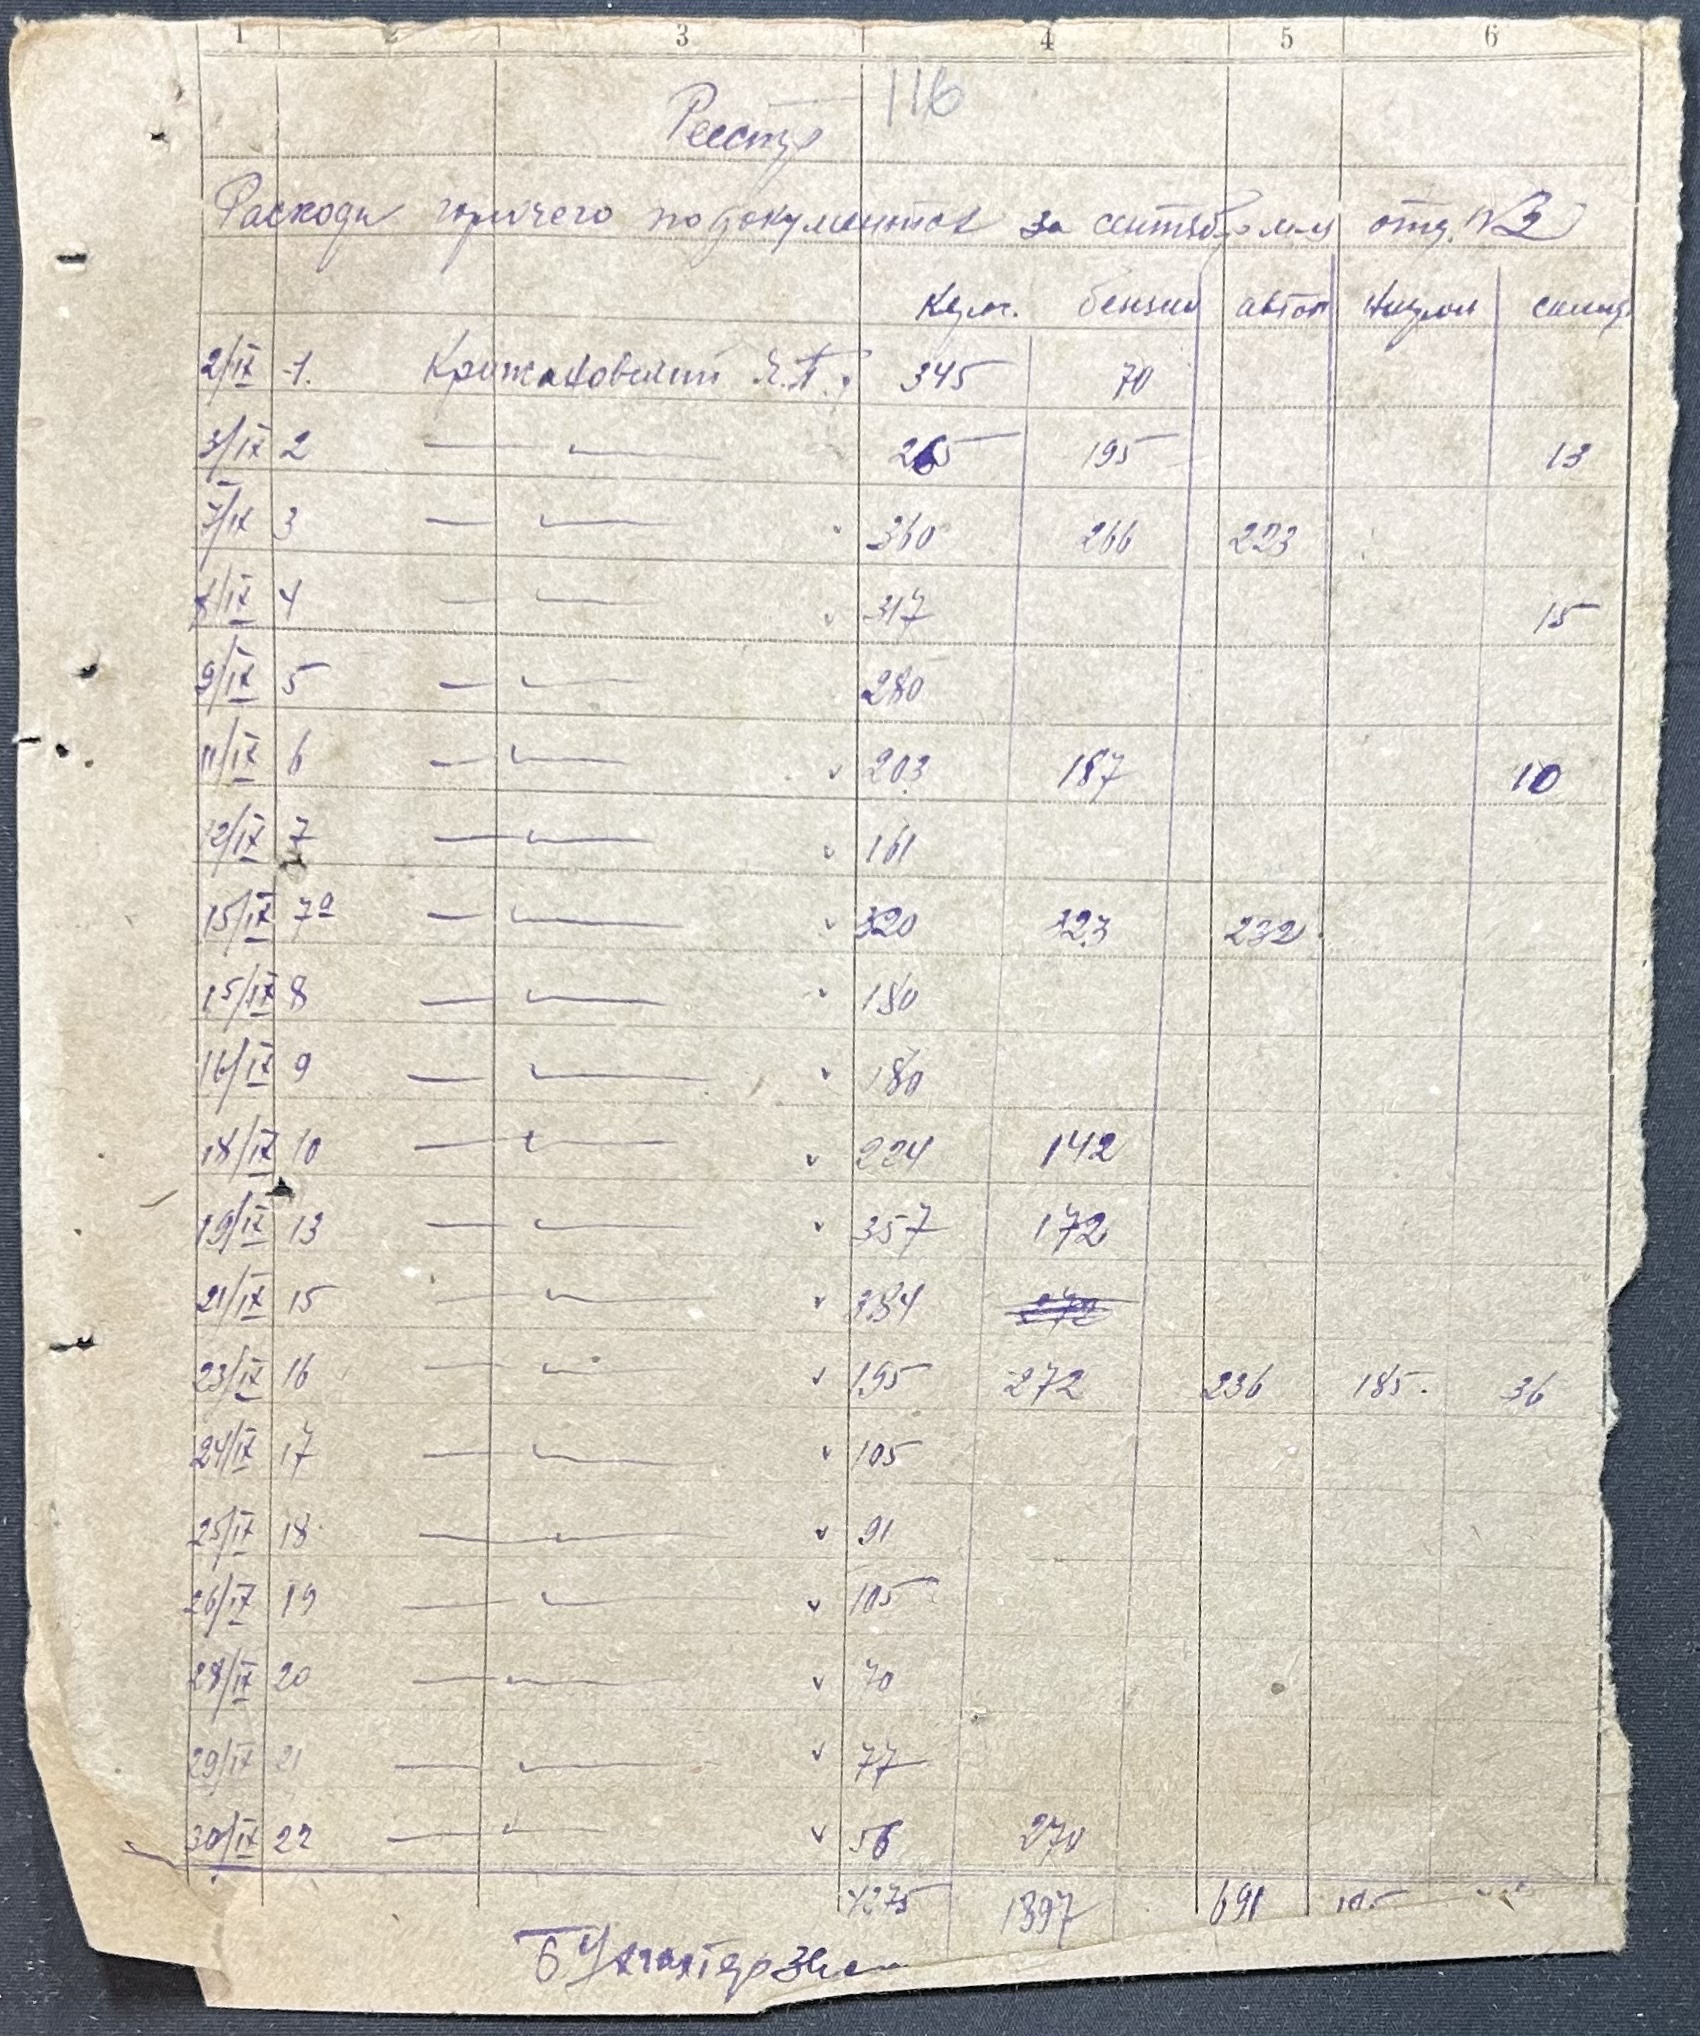 1 2 3 4 5 6
116
Реестр
Расхода горючего по документов за сентябрь м-ц отд. №3
Кер. бензин автол Нигрол солид.
2/IX 1. Крижановский 345 70
3/IX 2 — " — 265 195 13
7/IX 3 — " — 360 266 223
8/IX 4 — " — 317 15
9/IX 5 — " — 280
11/IX 6 — " — 203 187 10
12/IX 7 — " — 161
15/IX 7а — " — 320 323 232
15/IX 8 — " — 180
16/IX 9 — " — 180
18/IX 10 — " — 224 142
19/IX 13 — " — 357 172
21/IX 15 — " — 384 272
23/IX 16 — " — 195 272 236 185. 36
24/IX 17 — " — 105
25/IX 18 — " — 91
26/IX 19 — " — 105
28/IX 20 — " — 70
29/IX 21 — " — 77
30/IX 22 — " — 56 270
4275 1897 691
Бухгалтер